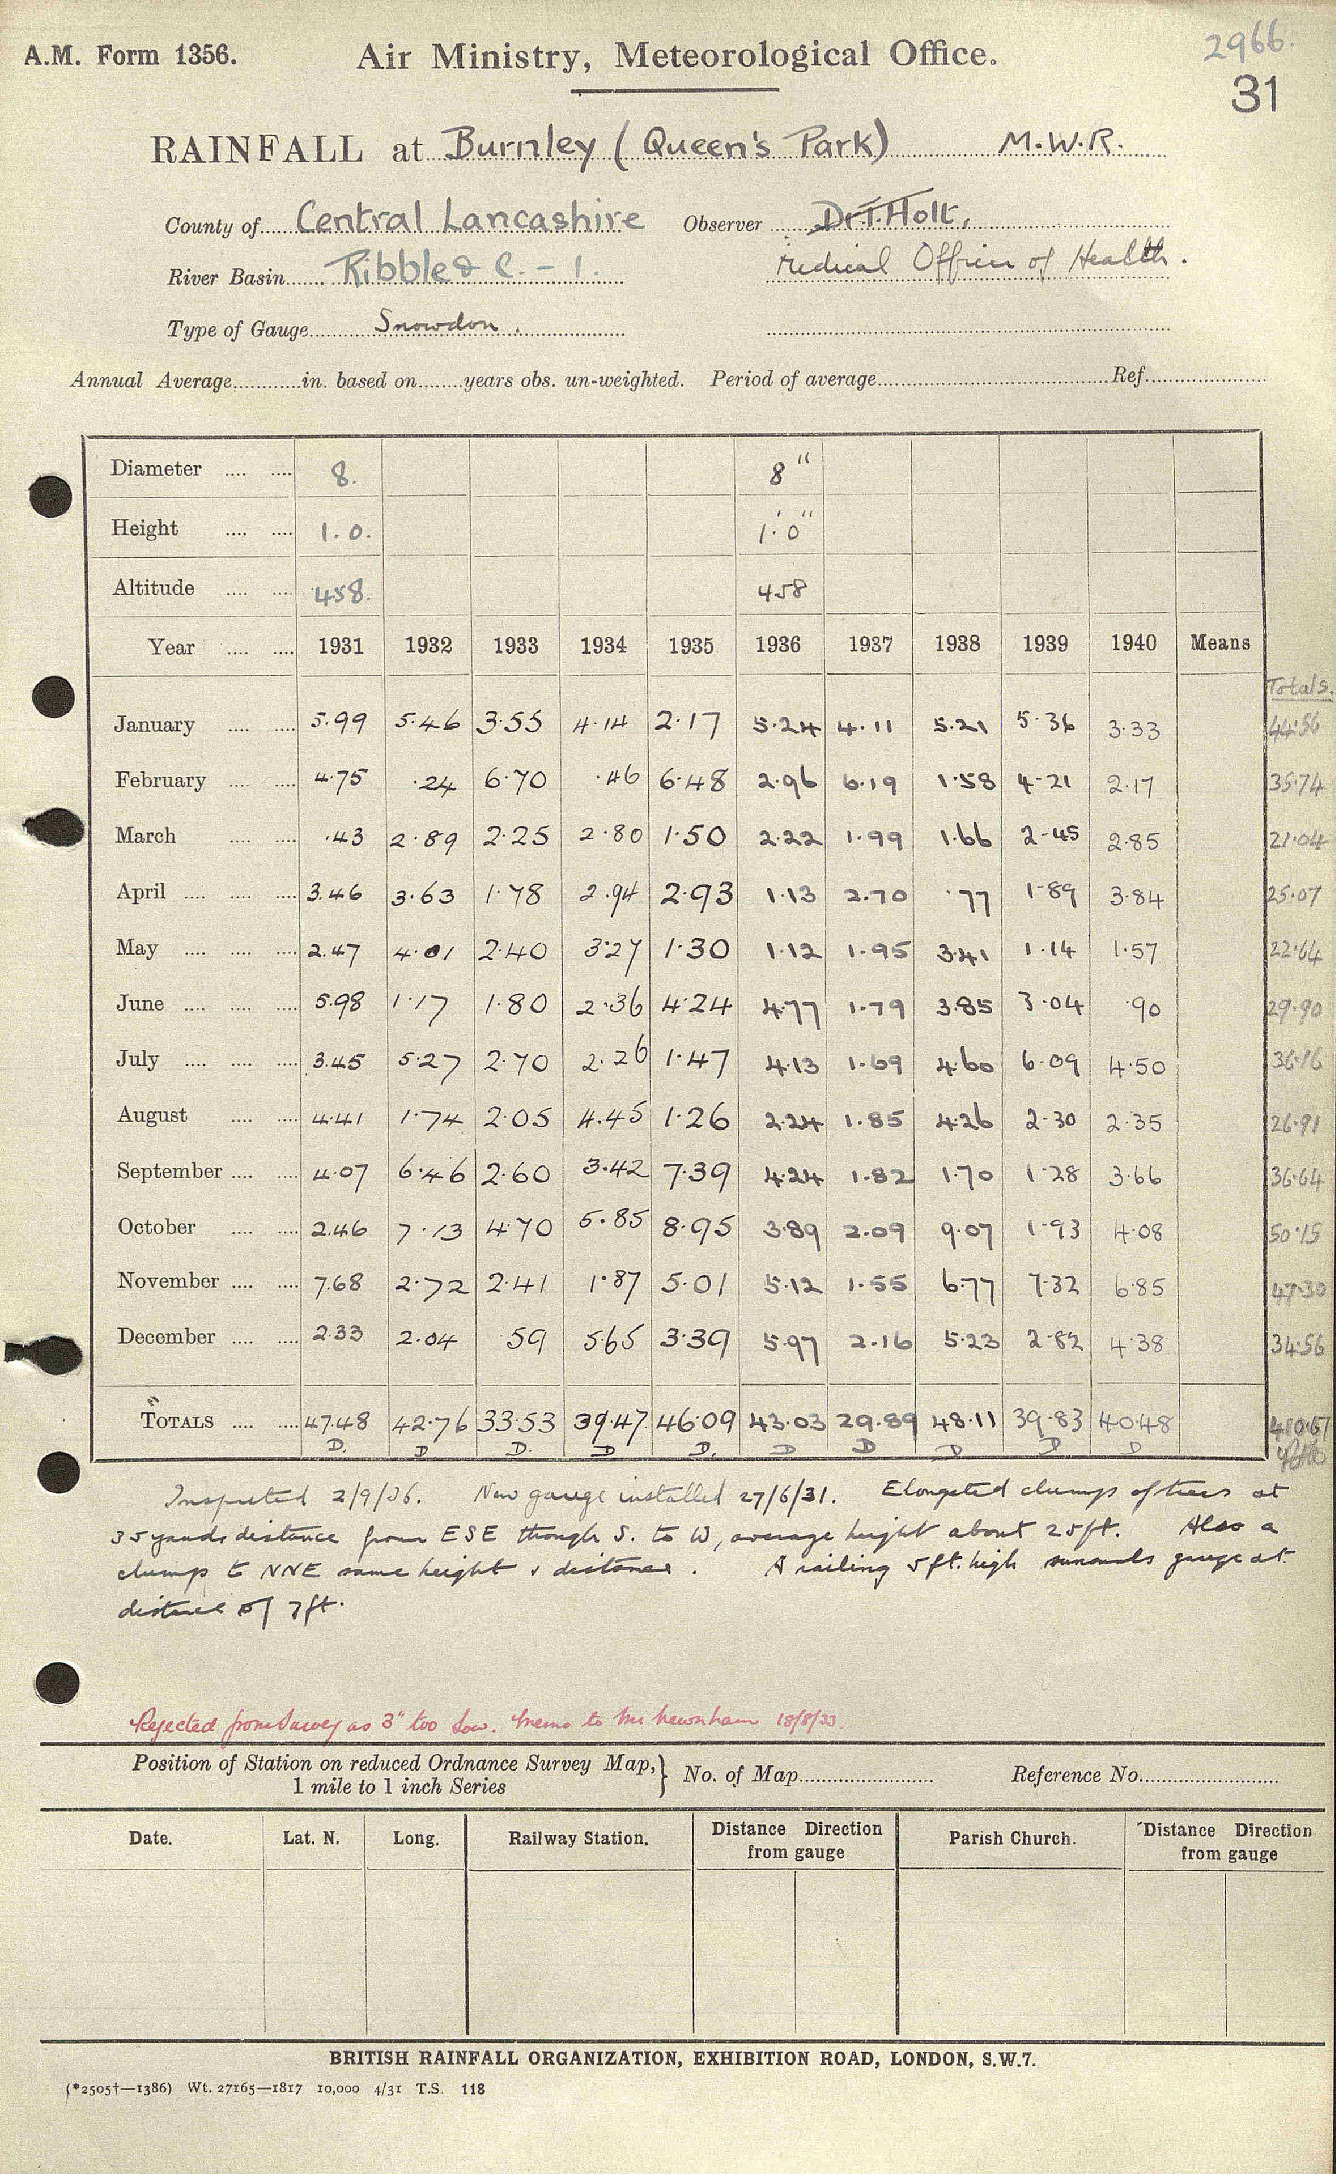 A.M. Form 1356. Air Ministry, Meteorological Office. 2966.
31
RAINFALL at Burnley (Queen's Park) M.W.R.
County of Central Lancashire Observer Dr. T. Holt,
River Basin Ribble & C. - 1. Medical Officer of Health.
Type of Gauge Snowdon.
Annual Average in. based on years obs. un-weighted. Period of average Ref.
Diameter 8. 8"
Height 1. 0. 1' 0"
Altitude 458. 458
Year 1931 1932 1933 1934 1935 1936 1937 1938 1939 1940 Means
Totals.
January 5.99 5.46 3.55 4.14 2.17 5.24 4.11 5.21 5.36 3.33 44.56
February 4.75 .24 6.70 .46 6.48 2.96 6.19 1.58 4.21 2.17 35.74
March .43 2.89 2.25 2.80 1.50 2.22 1.99 1.66 2.45 2.85 21.04
April 3.46 3.63 1.78 2.94 2.93 1.13 2.70 .77 1.89 3.84 25.07
May 2.47 4.01 2.40 3.27 1.30 1.12 1.95 3.41 1.14 1.57 22.64
June 5.98 1.17 1.80 2.36 4.24 4.77 1.79 3.85 3.04 .90 29.90
July 3.45 5.27 2.70 2.26 1.47 4.13 1.69 4.60 6.09 4.50 36.16
August 4.41 1.74 2.05 4.45 1.26 2.24 1.85 4.26 2.30 2.35 26.91
September 4.07 6.46 2.60 3.42 7.39 4.24 1.82 1.70 1.28 3.66 36.64
October 2.46 7.13 4.70 5.85 8.95 3.89 2.09 9.07 1.93 4.08 50.15
November 7.68 2.72 2.41 1.87 5.01 5.12 1.55 6.77 7.32 6.85 47.30
December 2.33 2.04 .59 5.65 3.39 5.97 2.16 5.23 2.82 4.38 34.56
TOTALS 47.48 42.76 33.53 39.47 46.09 43.03 29.89 48.11 39.83 40.48 410.67
D. D D. D D. D D D D D
Inspected 2/9/36. New gauge installed 27/6/31. Elongated clumps of trees at
35 yards distance from ESE through S. to W, average height about 25ft. Also a
clump to NNE same height & distance. A railing 5ft. high surrounds gauge at
distance of 7ft.
Rejected from Survey as 3" too low. Memo to Mr Newnham 18/8/33.
Position of Station on reduced Ordnance Survey Map, } No. of Map Reference No.
1 mile to 1 inch Series
Date. Lat. N. Long. Railway Station. Distance Direction Parish Church. Distance Direction
from gauge from gauge
BRITISH RAINFALL ORGANIZATION, EXHIBITION ROAD, LONDON, S.W.7.
(*2505†—1386) Wt. 27165—1817 10,000 4/31 T.S. 118